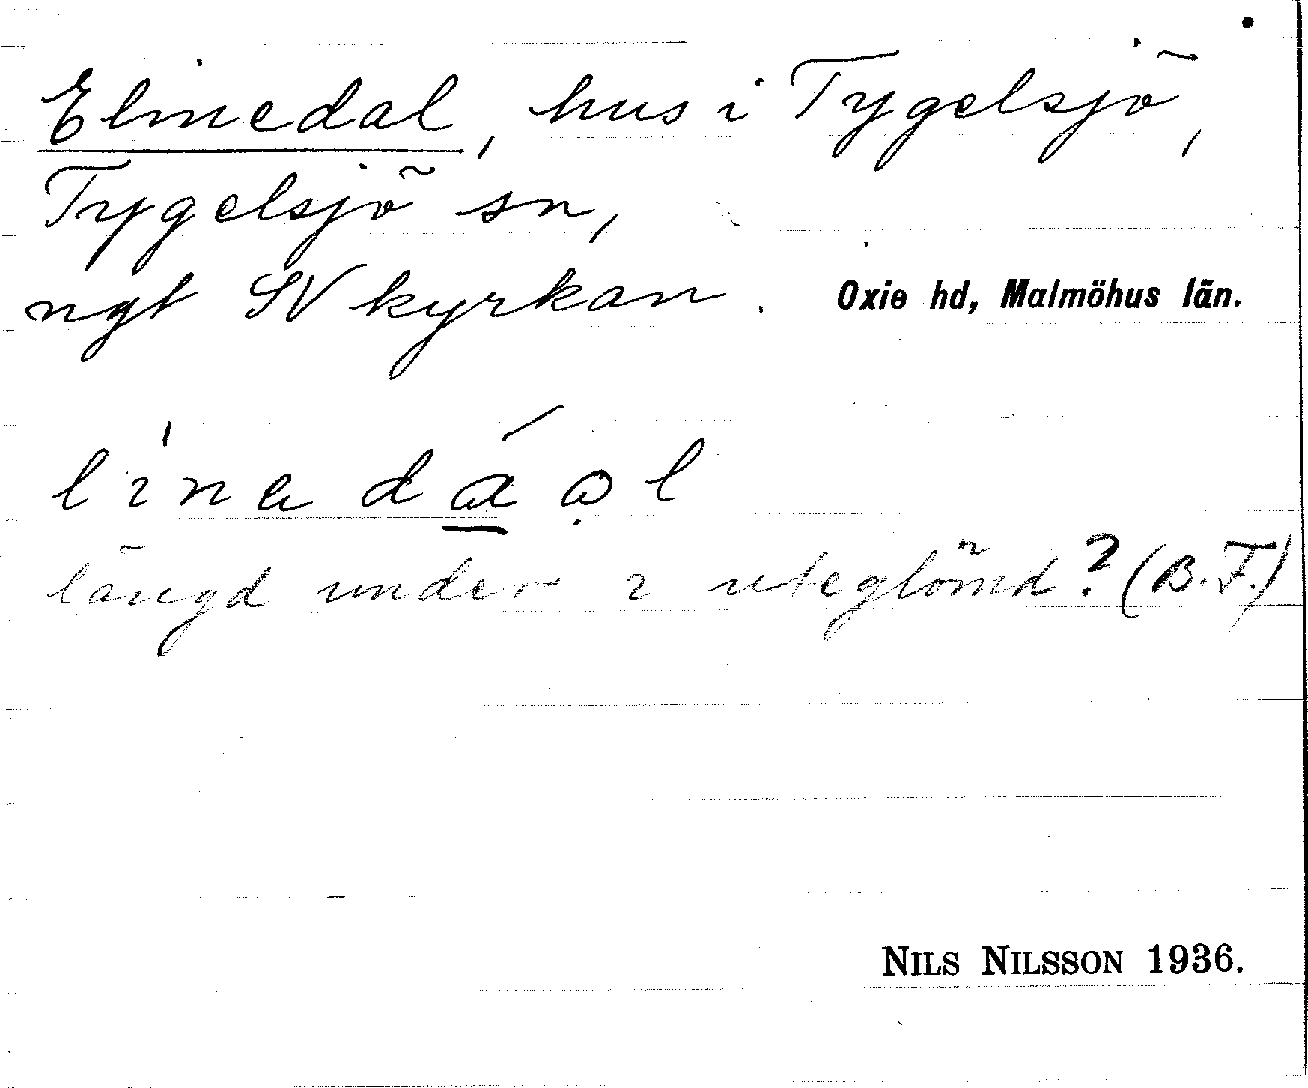 Elinedal, hus i Tygelsjö,
Tygelsjö sn,
ngt SV kyrkan. Oxie hd, Malmöhus län.
längd under ı uteglömd? (B. F.)
NILS NILSSON 1936.